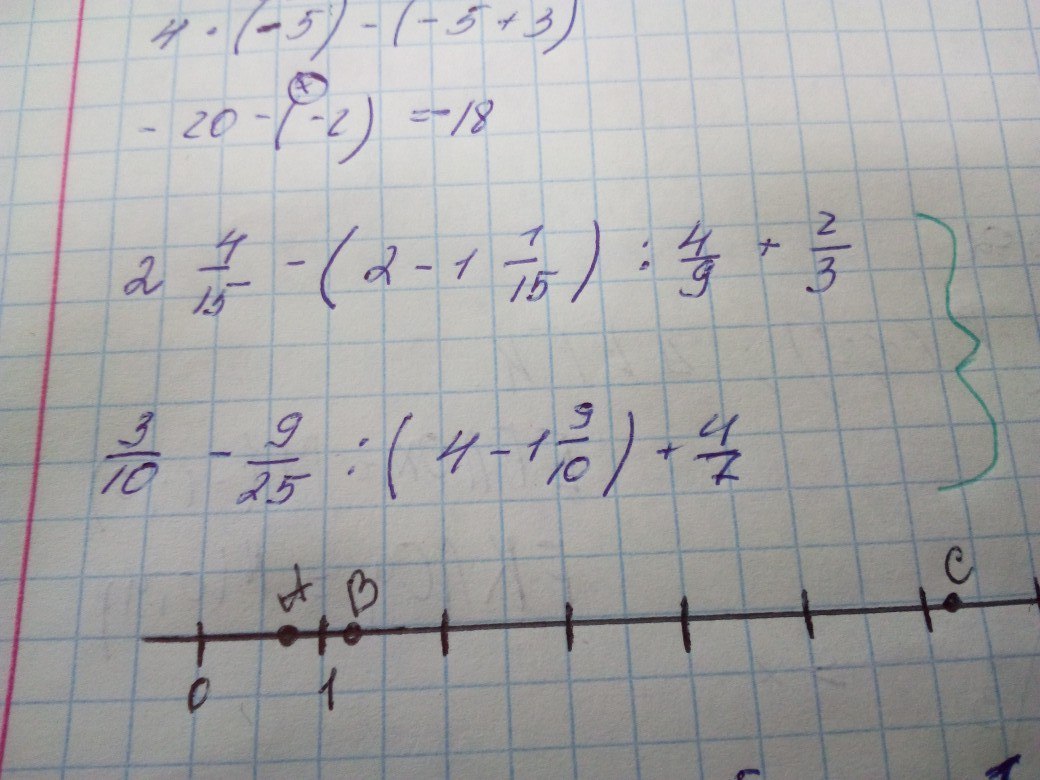 4 · (-5) - (-5 + 3)
-20 - (-2) = -18
2 4/15 - (2 - 1 1/15) : 4/9 + 2/3
3/10 - 9/25 : (4 - 1 9/10) + 4/7
A B C
0 1